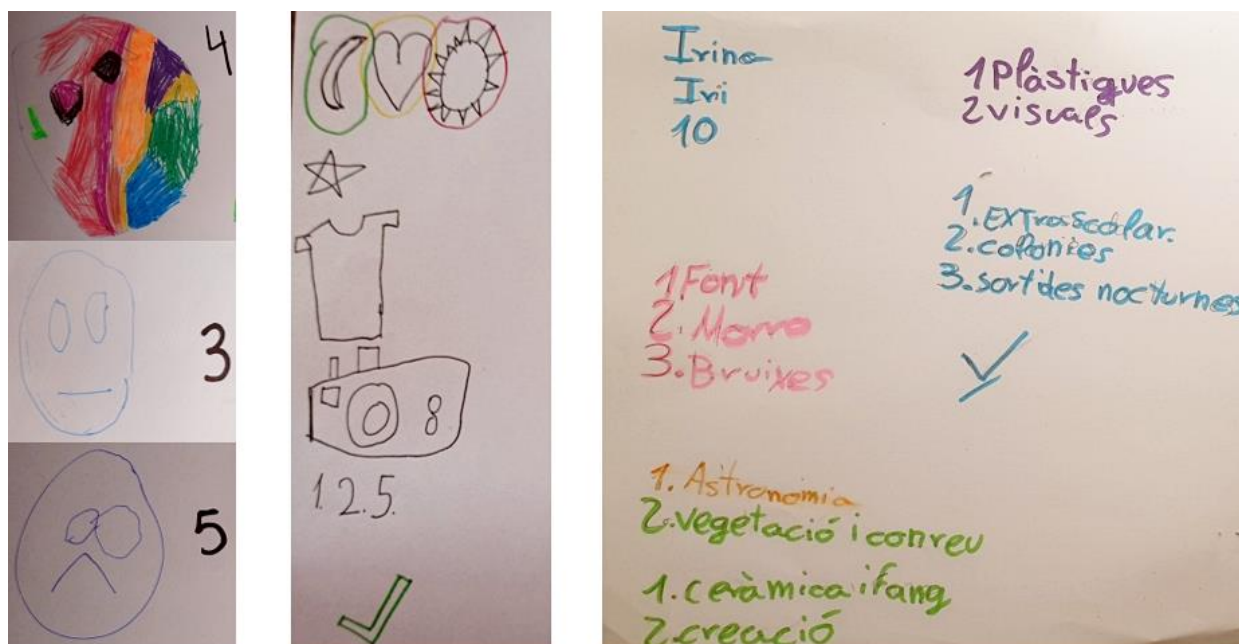 4
1
3
5
8
1.2.5.
Irina
Iri
10
1 Plàstiques
2 visuals
1. EXTrascolar.
2. colonies
3. sortides nocturnes
1 Font
2. Morro
3. Bruixes
1. Astronomia
2. vegetació i conreu
1. ceràmica i fang
2. creació